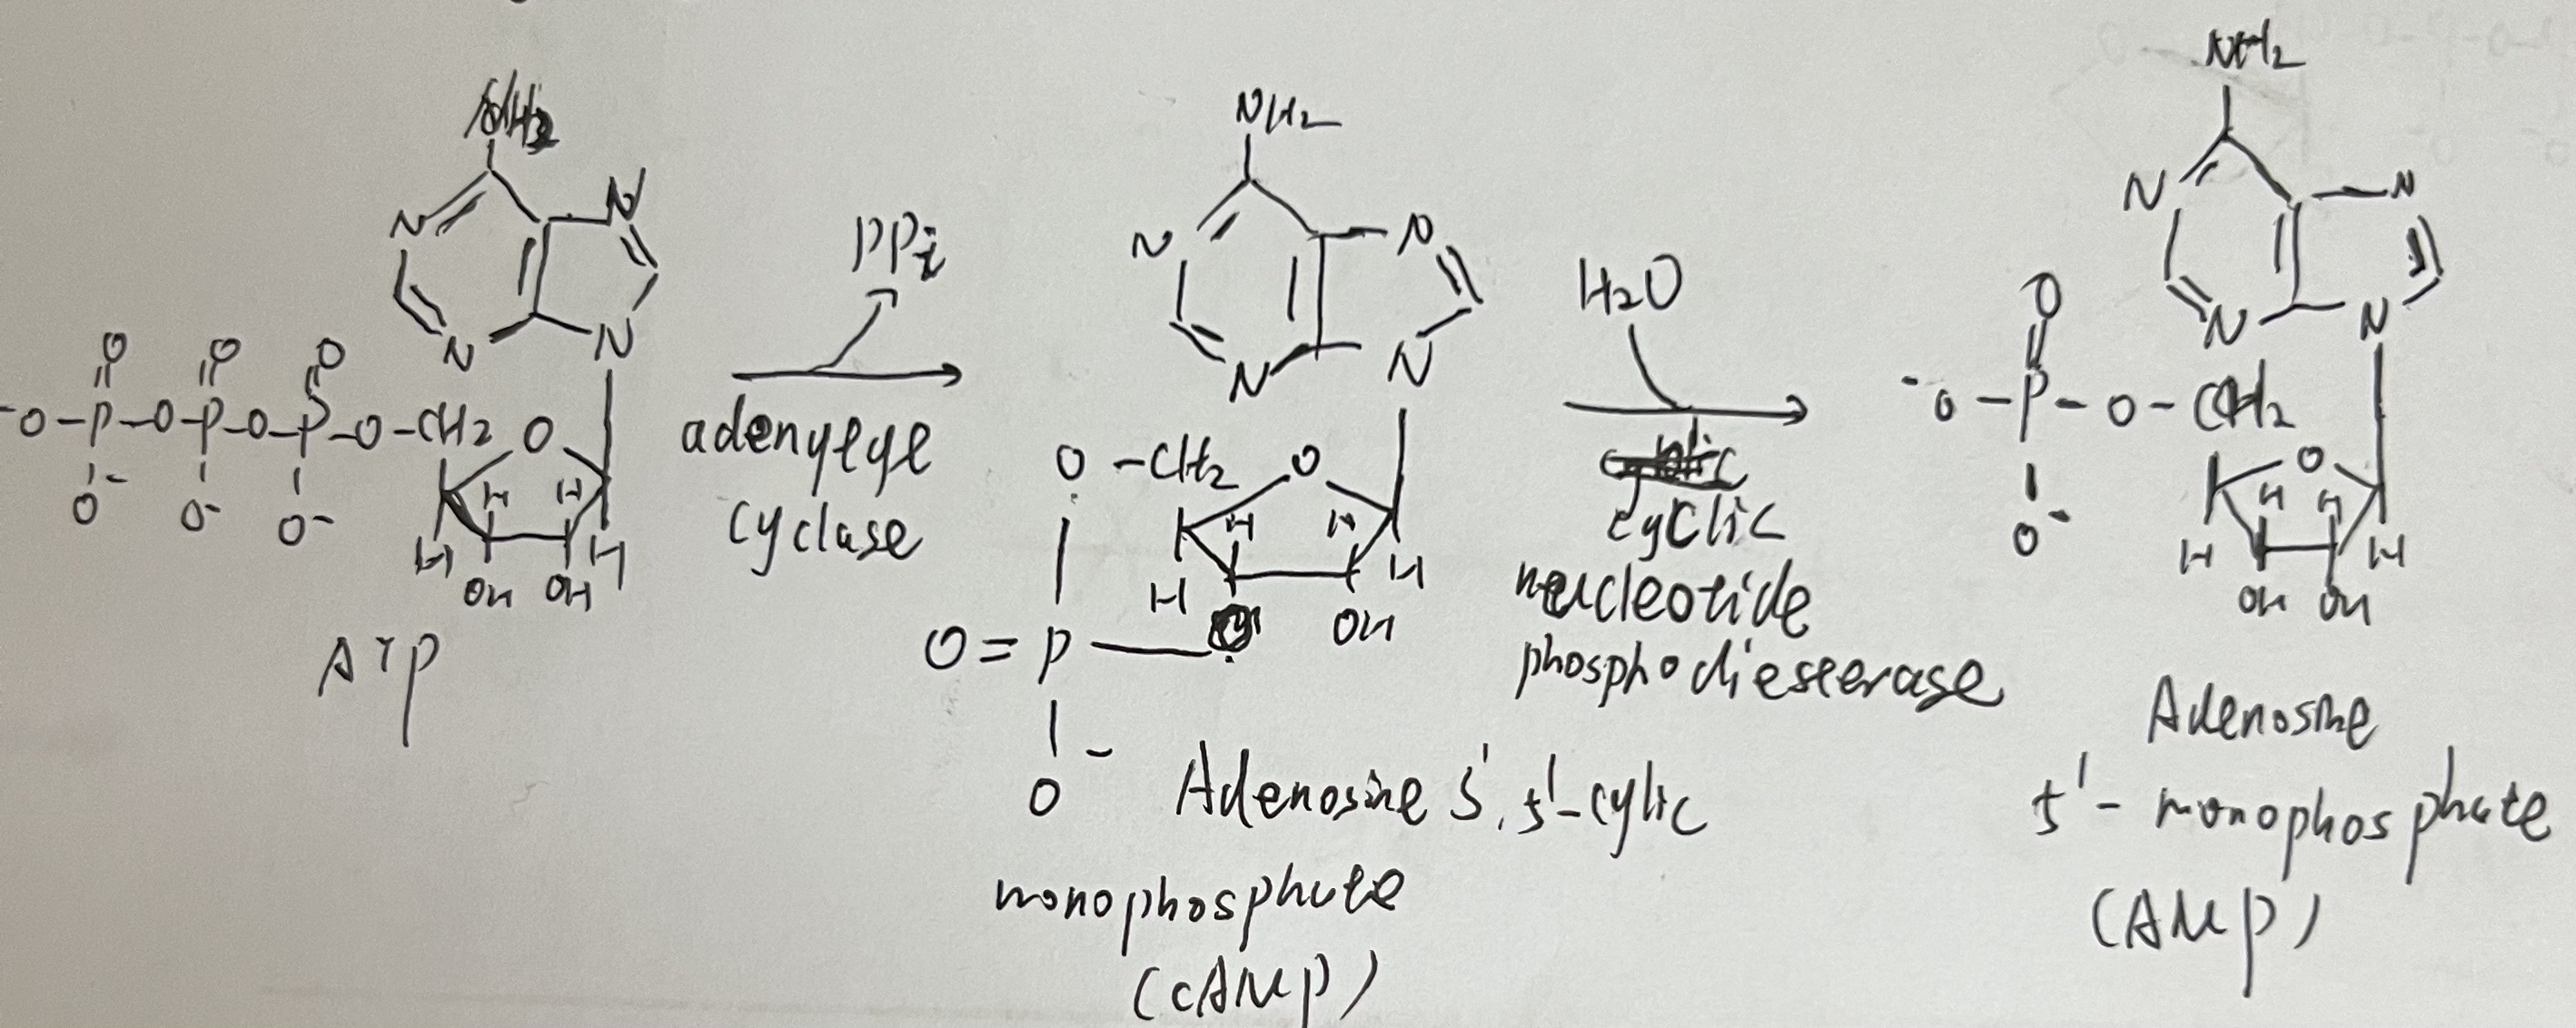 NH2
N
N
N
N
O
O
O
-O-P-O-P-O-P-O-CH2
O
O-
O-
O-
H
H
H
H
OH
OH
ATP
PPi
adenylyl
cyclase
NH2
N
N
N
N
O-CH2
O
H
H
H
H
O
OH
O=P
O-
Adenosine 3', 5'-cylic
monophosphate
(cAMP)
H2O
cyclic
nucleotide
phosphodiesterase
NH2
N
N
N
N
O
-O-P-O-CH2
O
O-
H
H
H
H
OH
OH
Adenosine
5'-monophosphate
(AMP)